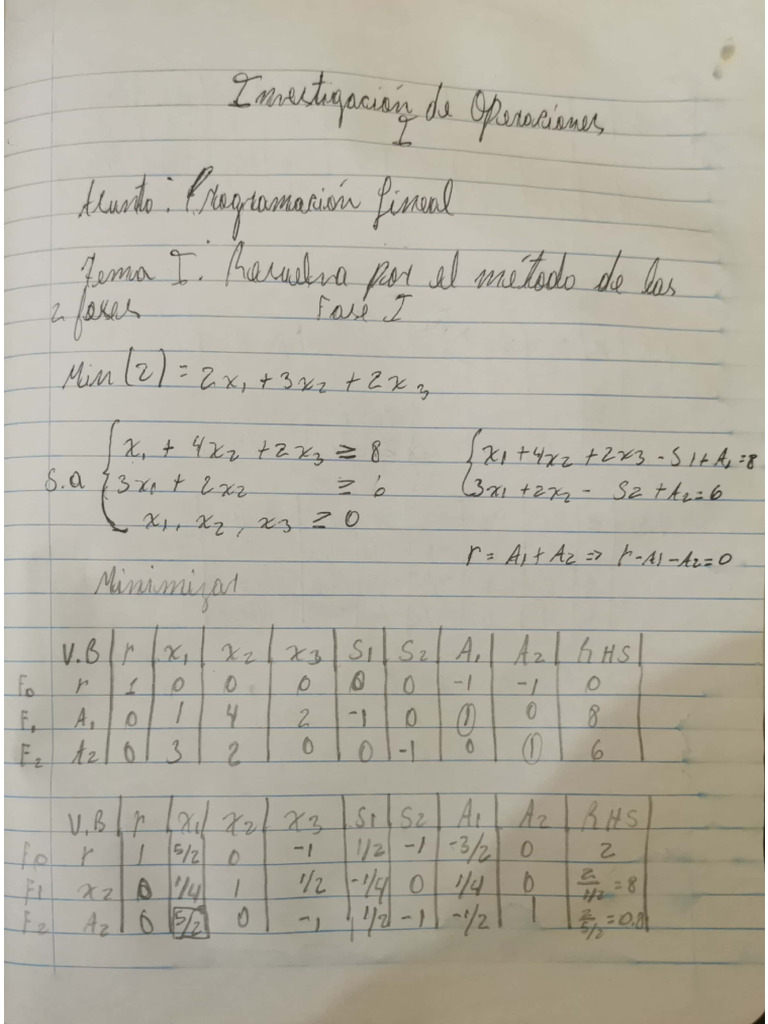 Investigación de Operaciones
I
Asunto: Programación lineal
Tema I: Resuelva por el método de las
2 fases Fase I
Min (z) = 2x₁ + 3x₂ + 2x₃
S.a { x₁ + 4x₂ + 2x₃ ≥ 8 { x₁ + 4x₂ + 2x3 - S1 + A₁ = 8
3x₁ + 2x₂ ≥ 6 3x₁ + 2x₂ - S2 + A₂ = 6
x₁, x₂, x₃ ≥ 0
r = A₁ + A₂ => r - A1 - A2 = 0
Minimizar
V.B | r | x₁ | x₂ | x3 | S1 | S2 | A₁ | A2 | RHS
F0 r | 1 | 0 | 0 | 0 | 0 | 0 | -1 | -1 | 0
F1 A₁ | 0 | 1 | 4 | 2 | -1 | 0 | 1 | 0 | 8
F2 A2 | 0 | 3 | 2 | 0 | 0 | -1 | 0 | 1 | 6
V.B | r | x₁ | x2 | x3 | S1 | S2 | A1 | A2 | RHS
F0 r | 1 | 5/2 | 0 | -1 | 1/2 | -1 | -3/2 | 0 | 2
F1 x2 | 0 | 1/4 | 1 | 1/2 | -1/4 | 0 | 1/4 | 0 | 2/1/2 = 8
F2 A2 | 0 | 5/2 | 0 | -1 | 1/2 | -1 | -1/2 | 1 | 2/5/2 = 0.8